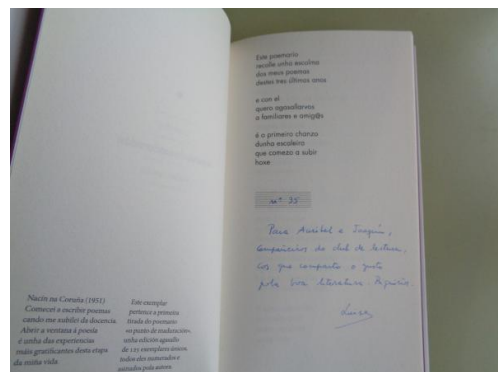 Nacín na Coruña (1951)
Comecei a escribir poemas
cando me xubilei da docencia.
Abrir a ventana á poesía
é unha das experiencias
máis gratificantes desta etapa
da miña vida.
Este exemplar
pertence á primeira
tirada do poemario
«o punto de maduración»,
unha edición agasallo
de 125 exemplares únicos,
todos eles numerados e
asinados pola autora.
Este poemario
recolle unha escolma
dos meus poemas
destes tres últimos anos
e con el
quero agasallarvos
a familiares e amig@s
é o primeiro chanzo
dunha escaleira
que comezo a subir
hoxe
nº 35
Para Anxibel e Joaquín,
compañeiros do club de lectura,
cos que comparto o gusto
pola boa literatura. Agarimo.
Luisa